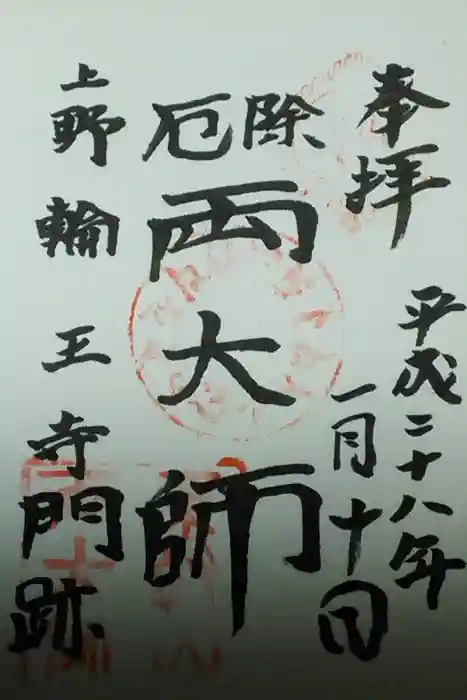 奉拝
平成二十八年
一月十日
除厄
両大師
上野
輪王寺門跡